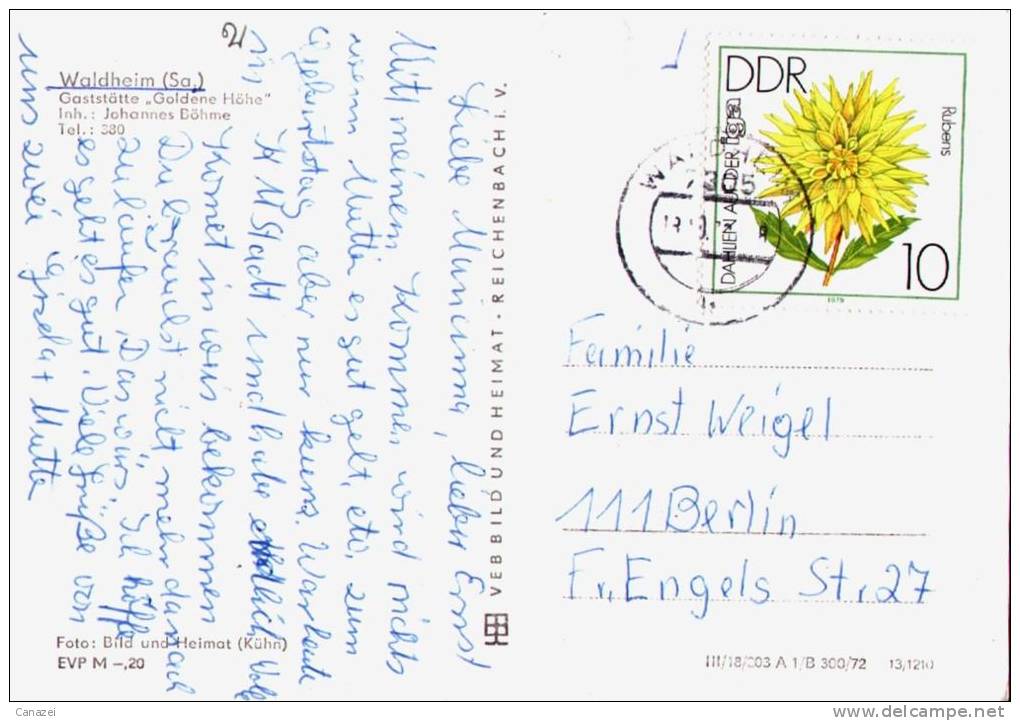 Waldheim (Sa.)
Gaststätte „Goldene Höhe"
Inh.: Johannes Böhme
Tel.: 380
Liebe Mumma, lieber Ernst
Mit meinem Kommen wird nichts
wenn Mutti es gut geht, etc. zum
Geburtstag aber nur kurz. War heute
in K M Stadt und habe endlich
Komet in weis bekommen
Du brauchst nicht mehr danach
zu laufen. Das wärs. Ich hoffe
es geht es gut. Viele Grüße von
uns zwei Gisela + Mutti
Foto: Bild und Heimat (Kühn)
EVP M –,20
VEB BILD UND HEIMAT · REICHENBACH i. V.
DDR
DAHLIEN AUF DER iga
Rubens
10
1979
Familie
Ernst Weigel
111 Berlin
Fr. Engels Str. 27
III/18/203 A 1/B 300/72 13/1210
Canazei
www.delcampe.net